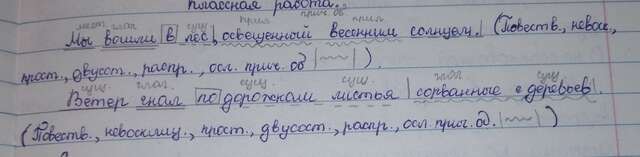 классная работа.
мест. глаг. сущ. прил. прич. об. прил.
Мы вошли в лес, освещенный весенним солнцем. (Повеств., невоск.,
прост., двусост., распр., осл. прич. об |~~| ).
сущ. глаг. сущ. сущ. глаг. сущ.
Ветер гнал по дорожкам листья | сорванные с деревьев|.
(Повеств., невосклиц., прост., двусост., распр., осл. прич. об. |~~| )